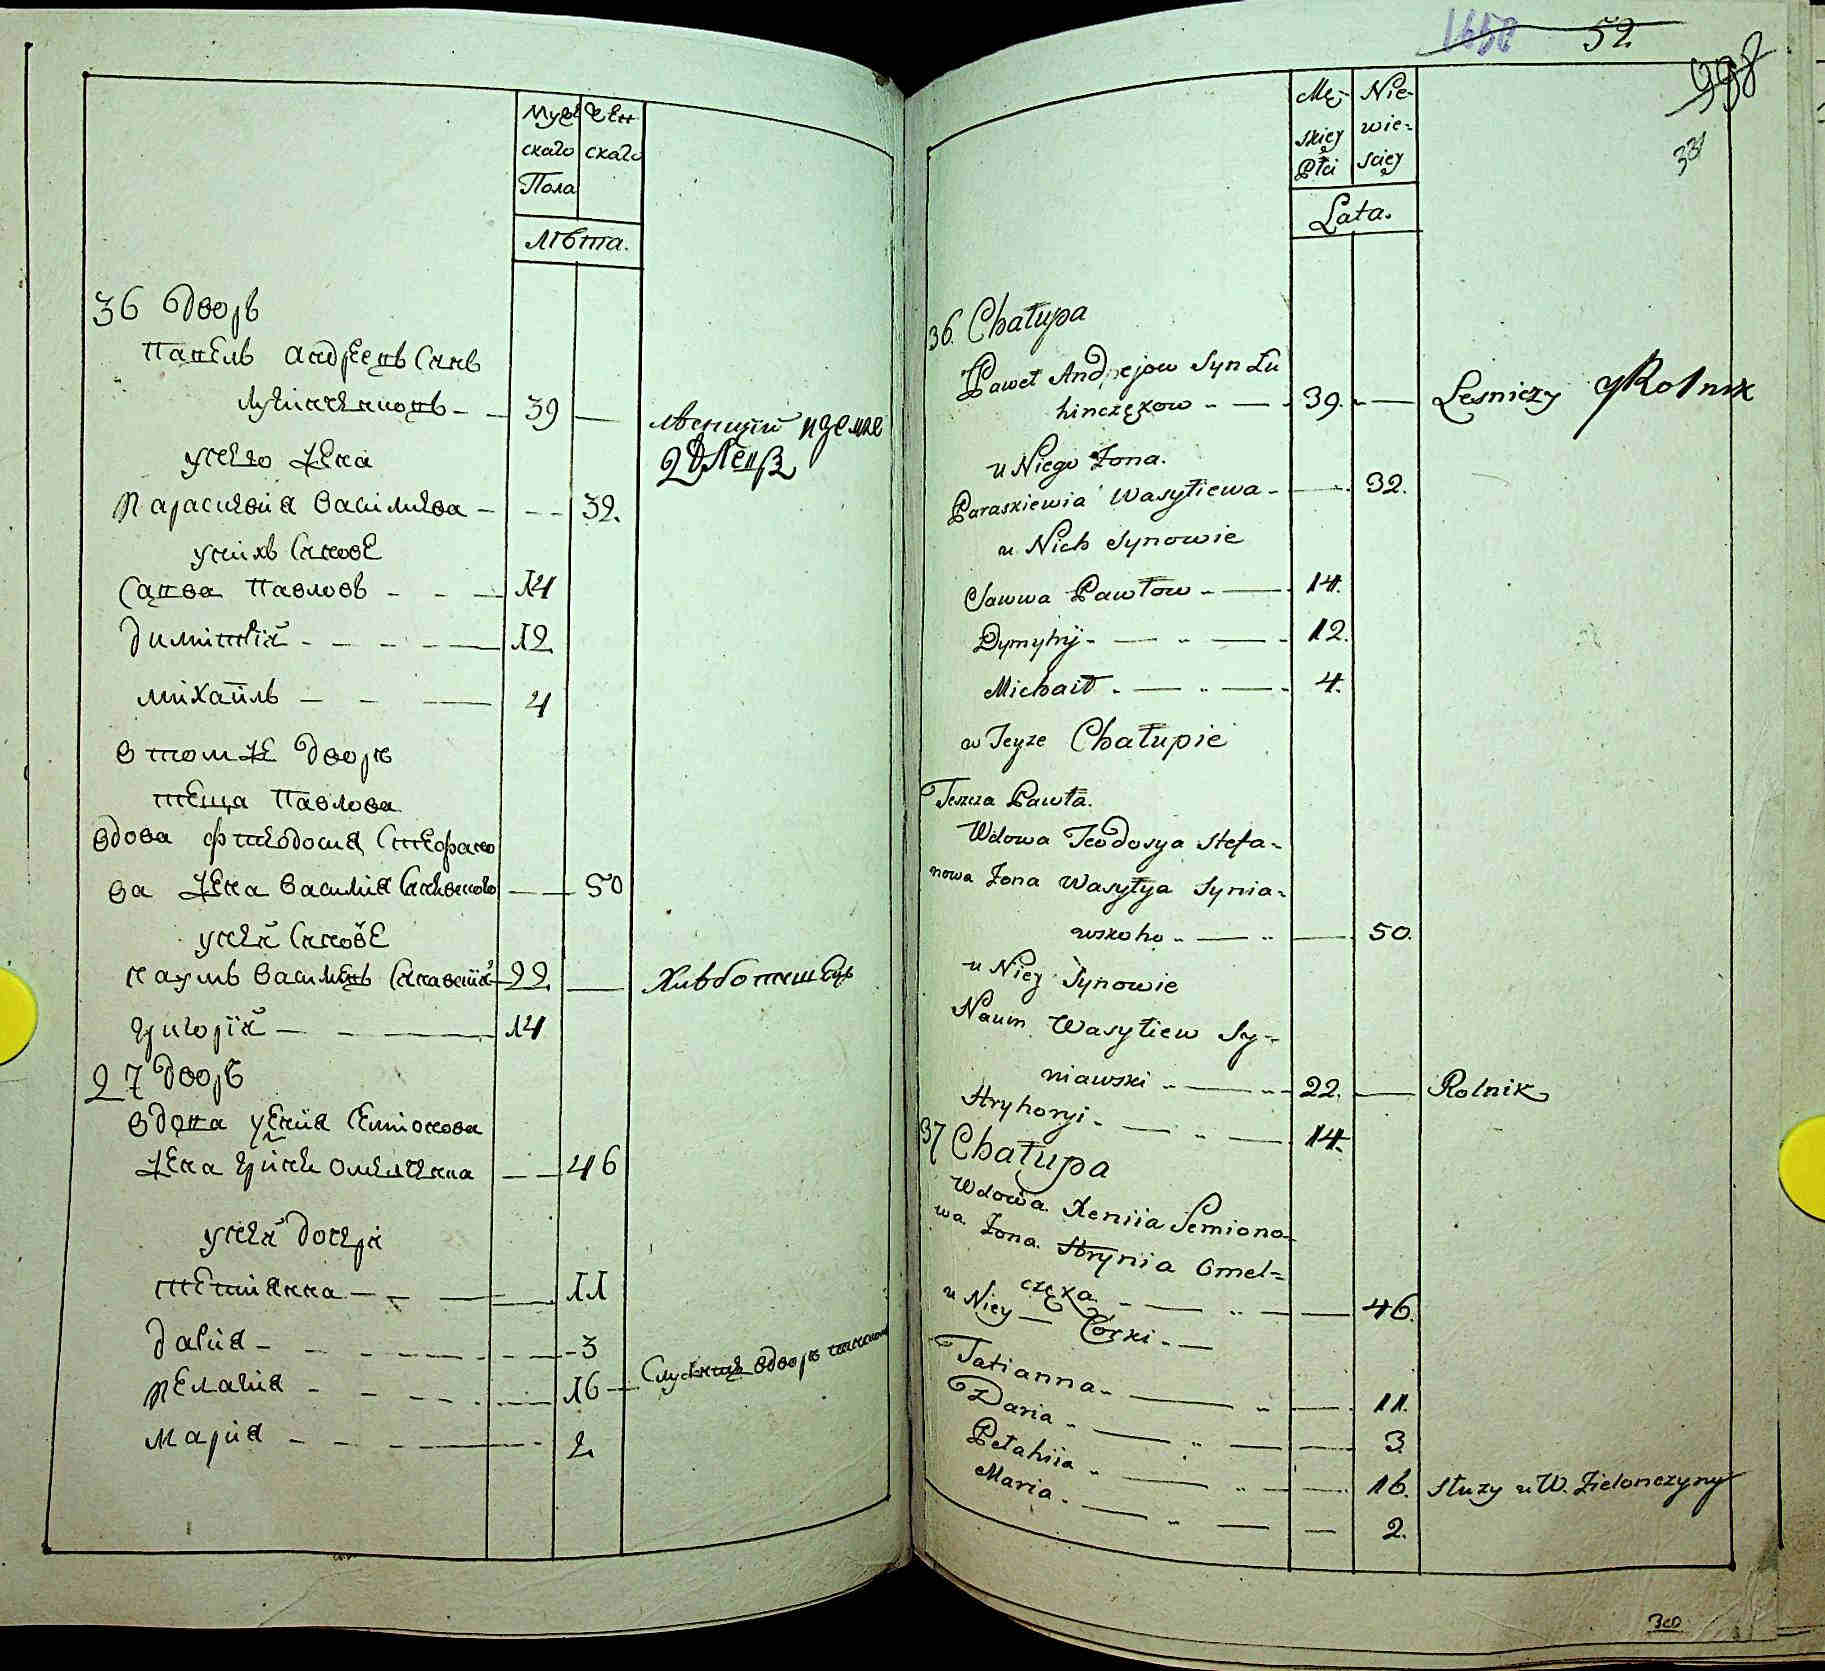 Муж Жен
скаго скаго
Пола
Лѣта.
36 Дворъ
Павелъ Андреевъ Синъ
39
лѣсничій и земле
уего жена
Параскевія Василиева - - - 32.
унихъ Синове
Савва Павловъ - - - 14
Димитрій - - - - - 12
Міхаилъ - - - 4
в томже дворѣ
теща Павлова
вдова Феодосия Стефано
ва жена Василия Синявского - - 50
уней Синове
Наумъ Василевъ Синавскій - 22 — Хлѣбопашецъ
Григорій - - - 14
27 Дворъ
вдова Ксения Семионова
жена Омелчека - - 46
уней дочери
Тетіанна - - - 11
Дария - - - - - 3
Пелагия - - - - 16 -
Мария - - - - 2.
1650 52.
998
331
Mę- Nie-
skiey wie=
Płci sciey
Lata.
36. Chałupa
Paweł Andrejow Syn Lu
hinczękow - — 39. - — Lesniczy y Rolnik
u Niego Żona.
Paraskiewia Wasyliewa - — 32.
u Nich Synowie
Sawwa Pawłow - — 14.
Dymytry - — - — 12.
Michaił - — - — 4.
w Teyże Chałupie
Teszcza Pawła.
Wdowa Teodosya Stefa=
nowa Żona Wasylya Synia=
wskoho - — - — 50.
u Niey Synowie
Naum Wasyliew Sy=
niawski - — - 22. — Rolnik
Hryhoryi - — - — 14.
37 Chałupa
Wdowa Xeniia Semiono
wa Żona Hrynia Omel=
częka. - — - — 46.
u Niey — Corki - —
Tatianna - — - — 11.
Daria - — - — 3.
Pełahiia - — - — 16. Służy u W. Zielonczyny
Maria - — - — 2.